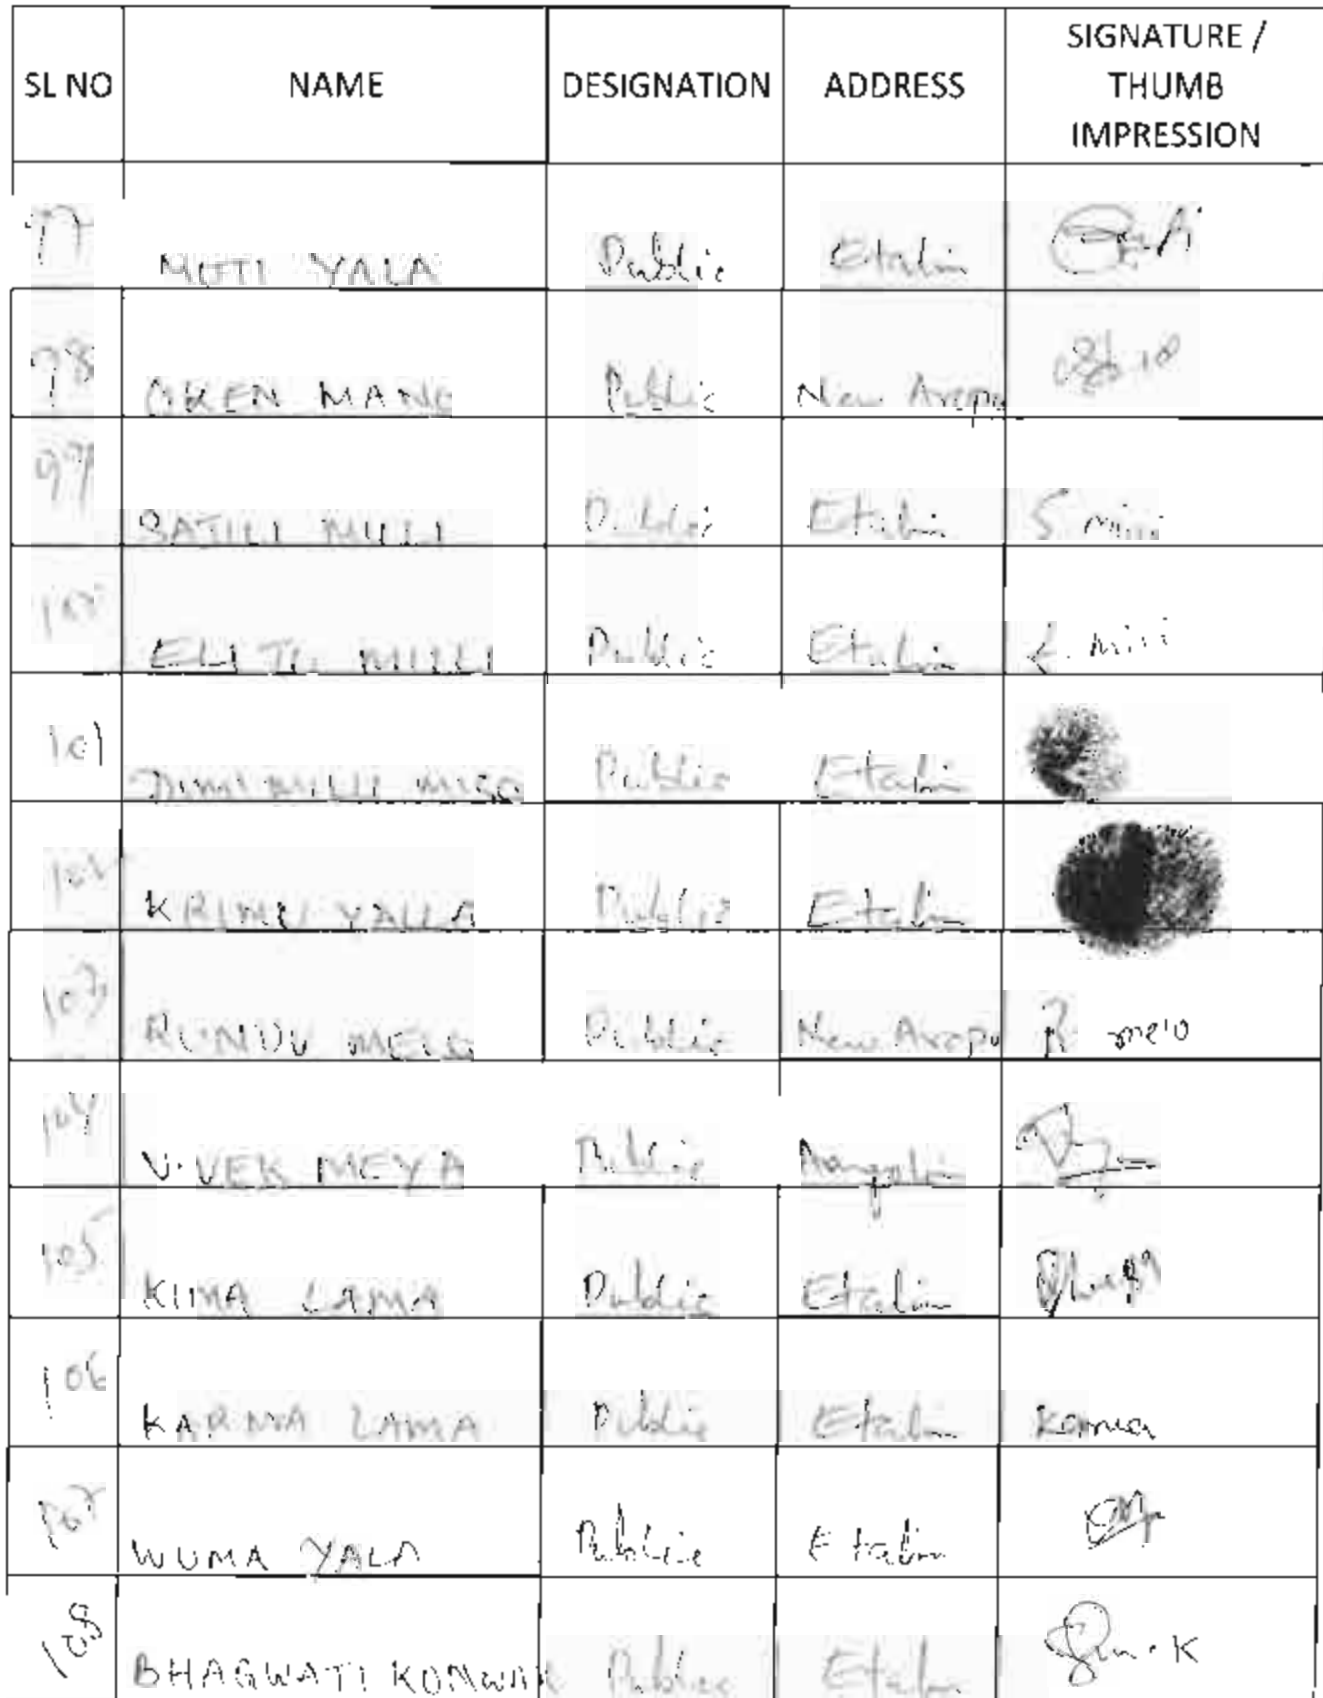 SL NO NAME DESIGNATION ADDRESS SIGNATURE / THUMB IMPRESSION
97 MOTI YALA Public Etalin
98 OKEN MANG Public New Aropo
99 SATILI MILLI Public Etalin S. Milli
100 ELI TO MILLI Public Etalin E. Milli
101 MILLI MISO Public Etalin
102 KRIMU YALLA Public Etalin
103 RUNDU MELO Public New Aropo R melo
104 VIVEK MEYA Public
105 KUMA LAMA Public Etalin
106 KARMA LAMA Public Etalin Karma
107 WUMA YALA Public Etalin
108 BHAGWATI KONWAR Public Etalin